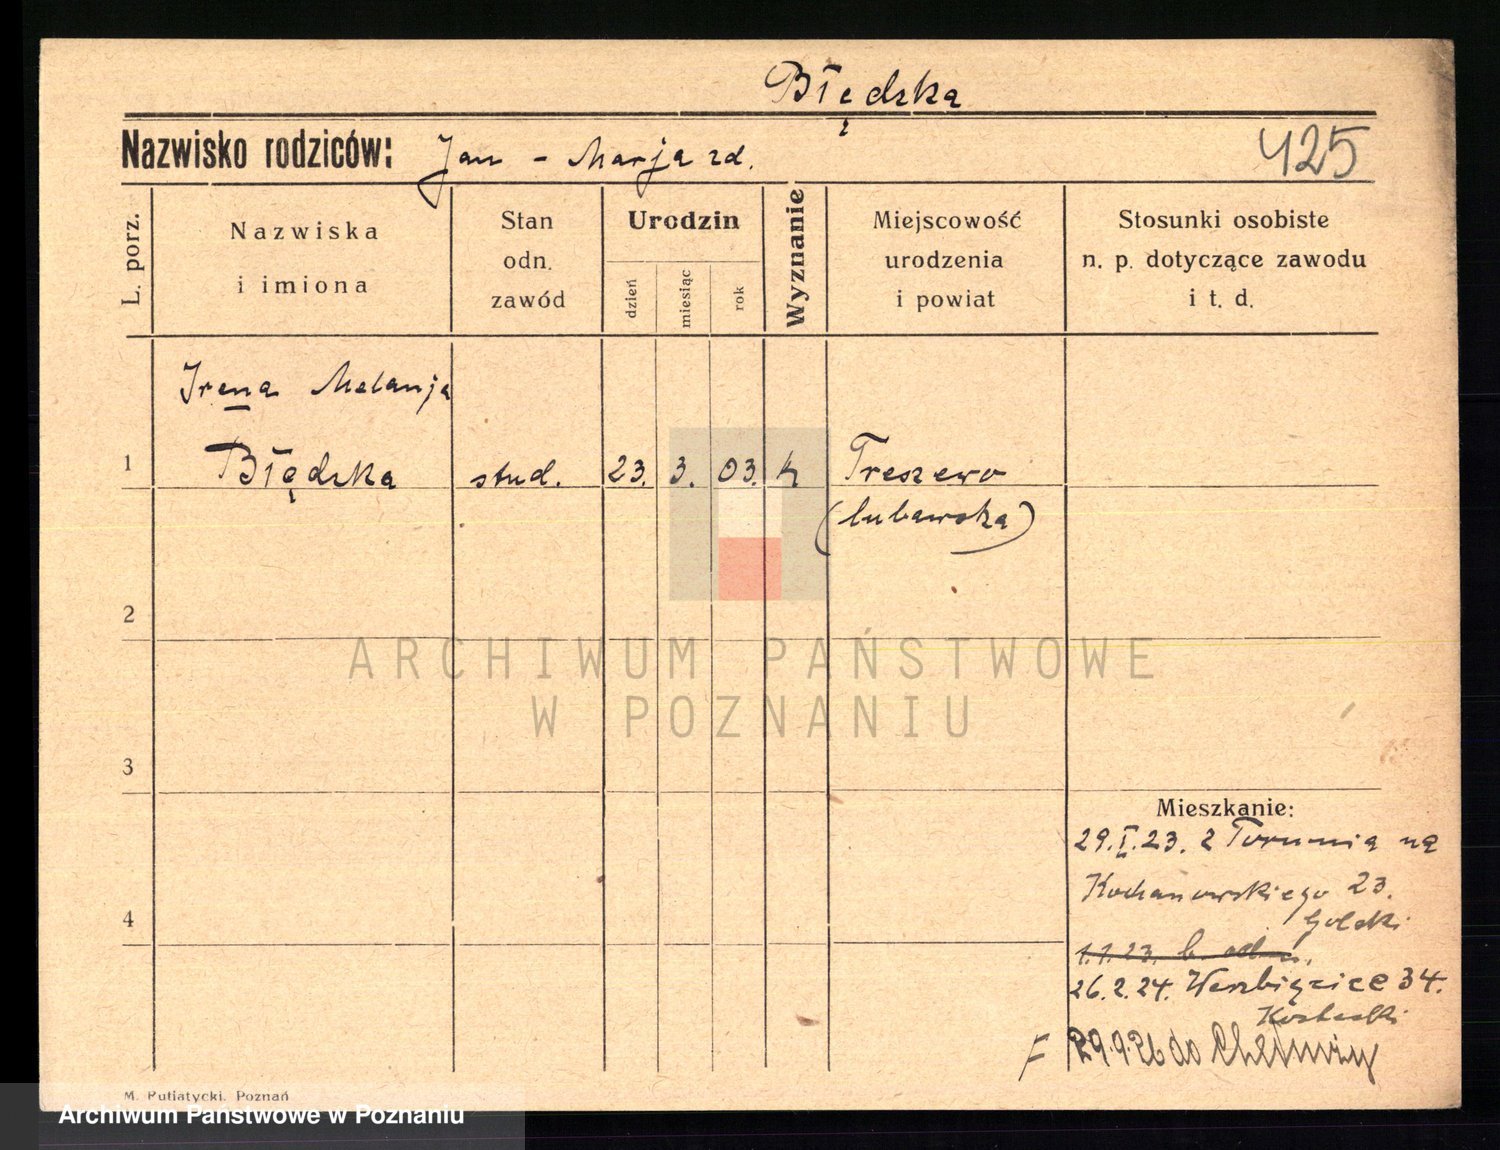 Błędzka
Nazwisko rodziców: Jan - Marja zd.
425
L. porz.
Nazwiska
i imiona
Stan
odn.
zawód
Urodzin
dzień
miesiąc
rok
Wyznanie
Miejscowość
urodzenia
i powiat
Stosunki osobiste
n. p. dotyczące zawodu
i t. d.
Irena Melanja
1 Błędzka stud. 23. 3. 03. k Treszewo
(lubawska)
2
ARCHIWUM PAŃSTWOWE
W POZNANIU
3
Mieszkanie:
29.I.23. z Torunia na
Kochanowskiego 23.
4
1.1.23.
26.2.24. Wierzbięcice 34.
F 29.9.26 do Chełmży
M. Putiatycki. Poznań
Archiwum Państwowe w Poznaniu